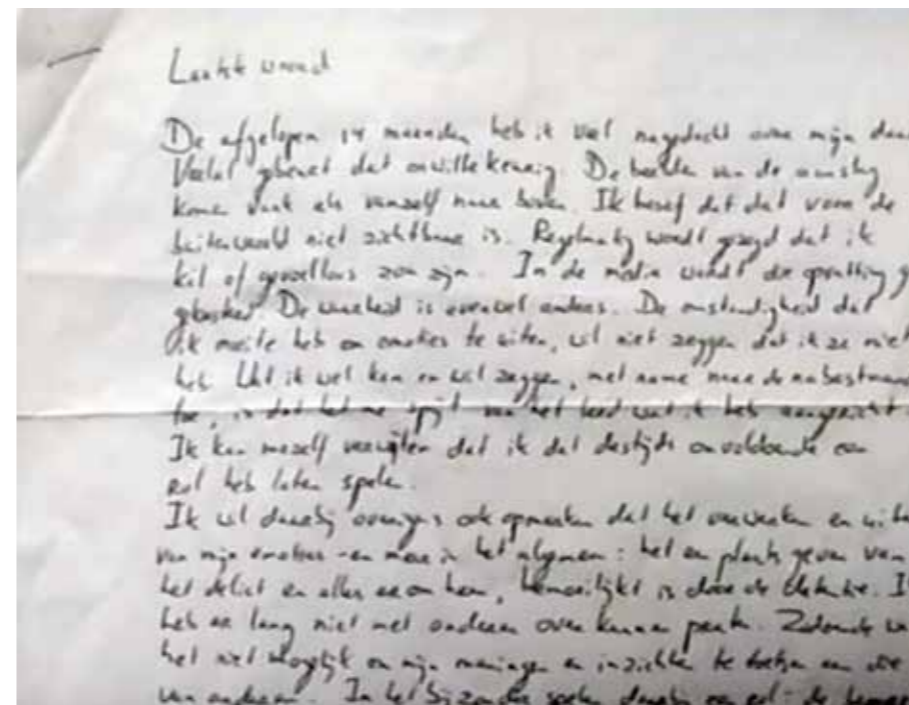 Laatste woord
De afgelopen 14 maanden heb ik veel nagedacht over mijn daad
Veelal gebeurt dat onwillekeurig. De beelden van de aanslag
komen vaak als vanzelf naar boven. Ik besef dat dat voor de
buitenwereld niet zichtbaar is. Regelmatig wordt gezegd dat ik
kil of gevoelloos zou zijn. In de media wordt die opvatting
De waarheid is evenwel anders. De omstandigheid dat
ik moeite heb om emoties te uiten, wil niet zeggen dat ik ze niet
heb. Wat ik wel kan en wil zeggen, met name naar de nabestaand
toe, is dat het me spijt van het leed wat ik heb aangericht
Ik kan mezelf verwijten dat ik dat destijds onvoldoende een
rol heb laten spelen.
Ik wil daarbij overigens ook opmerken dat het verwerken en uiten
van mijn emoties - en meer in het algemeen: het een plaats geven van
het delict en alles eromheen, bemoeilijkt is door de detentie. I
heb er lang niet met anderen over kunnen praten. Zodoende wa
het niet mogelijk om mijn meningen en inzichten te toetsen aan die
van anderen. In het bijzonder spelen daarbij een rol: de